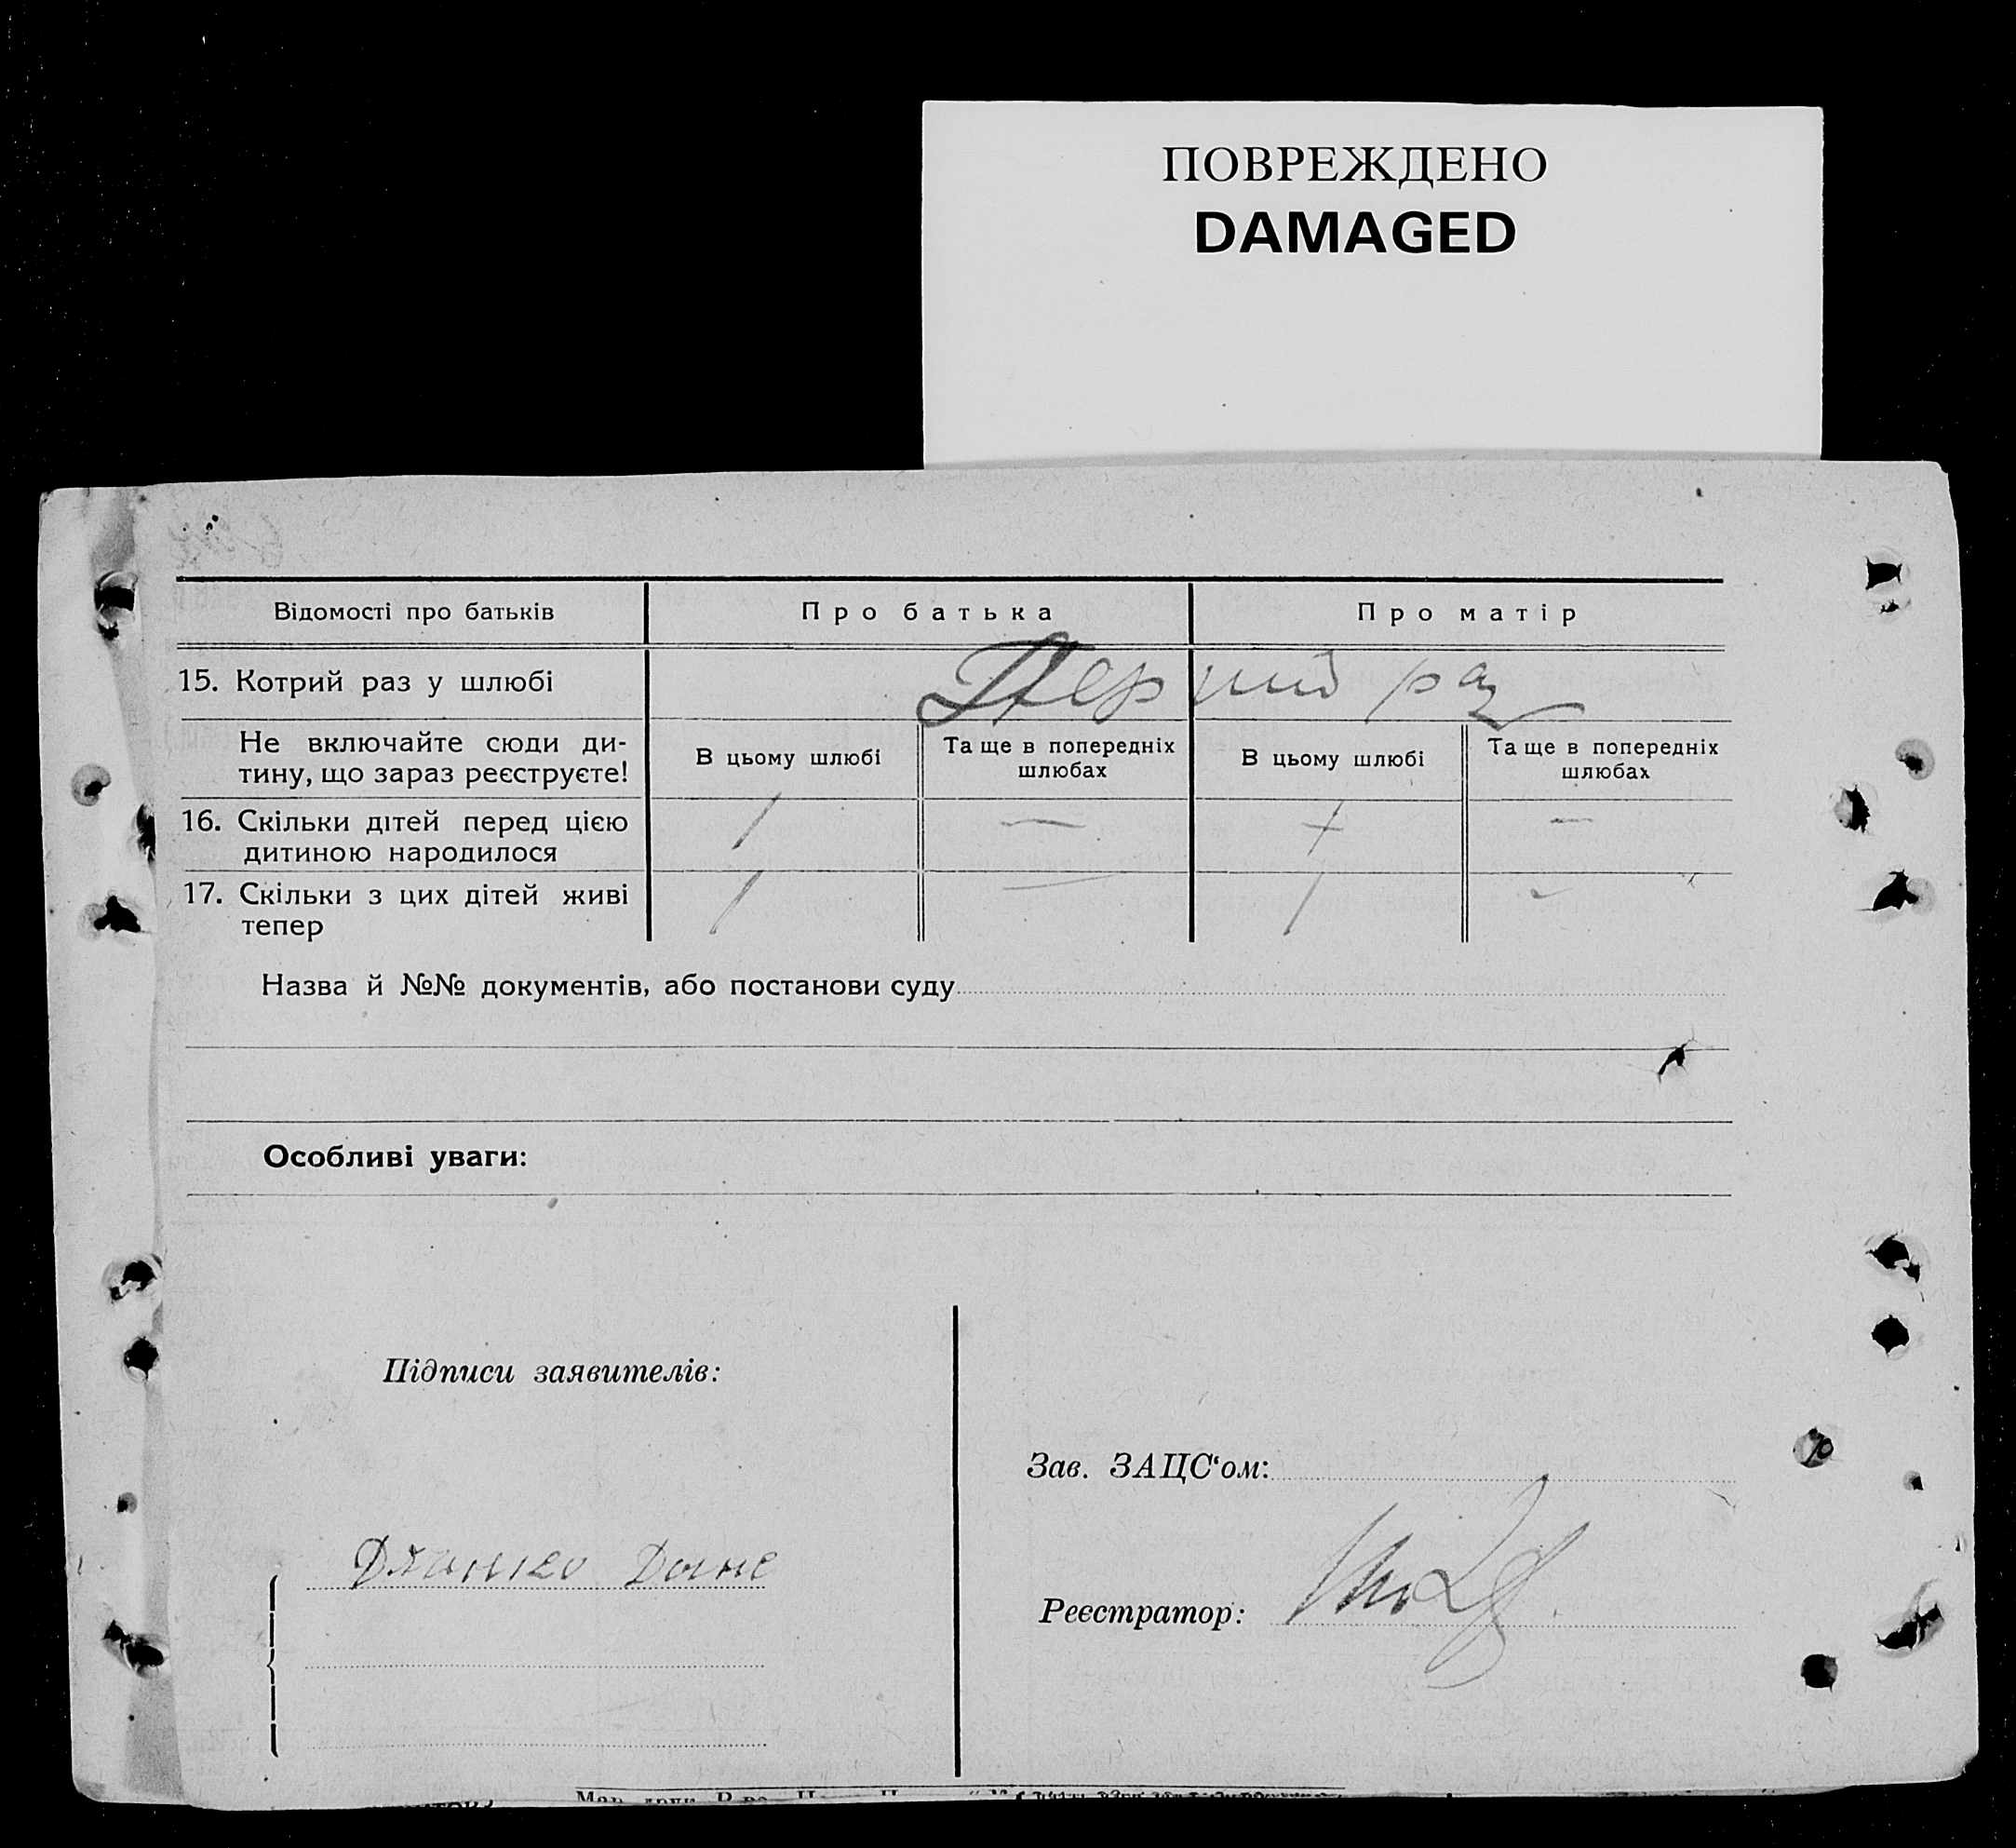 ПОВРЕЖДЕНО
DAMAGED
Відомості про батьків
Про батька
Про матір
15. Котрий раз у шлюбі
Перший раз
Не включайте сюди ди-
тину, що зараз реєструєте!
В цьому шлюбі
Та ще в попередніх
шлюбах
В цьому шлюбі
Та ще в попередніх
шлюбах
16. Скільки дітей перед цією
дитиною народилося
1 — 1 —
17. Скільки з цих дітей живі
тепер
1 — 1 -
Назва й №№ документів, або постанови суду
Особливі уваги:
Підписи заявителів:
Зав. ЗАЦС‘ом:
Реєстратор: